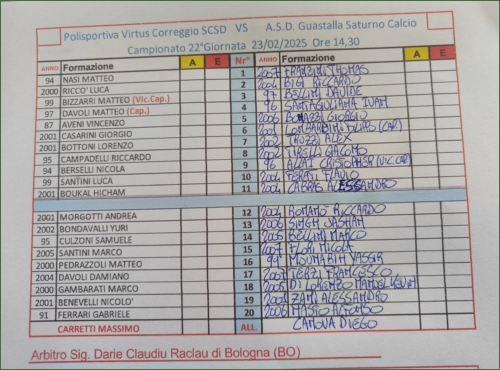 Polisportiva Virtus Correggio SCSD VS A.S.D. Guastalla Saturno Calcio
Campionato 22°Giornata 23/02/2025 Ore 14,30
ANNO Formazione A E Nr° ANNO Formazione A E
94 NASI MATTEO 1 2007 THOMAS
2000 RICCO' LUCA 2 2004 BIGI RICCARDO
99 BIZZARRI MATTEO (Vic.Cap.) 3 97 BELLINI DAVIDE
97 DAVOLI MATEO (Cap.) 4 96 IVAN
87 AVENI VINCENZO 5 2006 GIORGIO
2001 CASARINI GIORGIO 6 LOMBARDINI (CAP)
2001 BOTTONI LORENZO 7 ALEX
95 CAMPADELLI RICCARDO 8 GIACOMO
94 BERSELLI NICOLA 9 96 (VIC CAP)
99 SANTINI LUCA 10 FLAVIO
2001 BOUKAL HICHAM 11 ALESSANDRO
2001 MORGOTTI ANDREA 12 2004 ROMANO RICCARDO
2002 BONDAVALLI YURI 13 2006 SINGH JASHAN
95 CULZONI SAMUELE 14 BELLINI MARCO
2005 SANTINI MARCO 15 2007 FLORI NICOLA
2000 PEDRAZZOLI MATTEO 16 YASSIR
2004 DAVOLI DAMIANO 17 TERZI FRANCESCO
2000 GAMBARATI MARCO 18 2005 DI LORENZO
2001 BENEVELLI NICOLO' 19 ZAMI ALESSANDRO
91 FERRARI GABRIELE 20 2006 ALFONSO
CARRETTI MASSIMO ALL. CANOVA DIEGO
Arbitro Sig. Darie Claudiu Raclau di Bologna (BO)